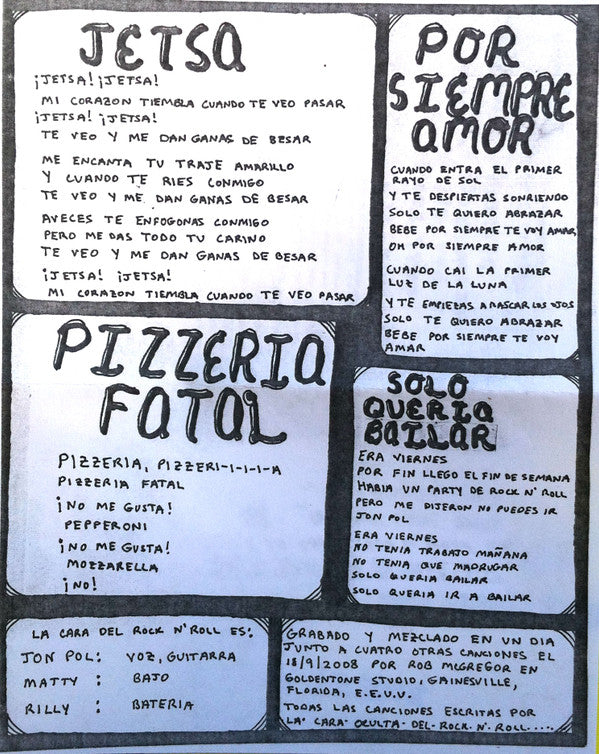 JETSA
¡JETSA! ¡JETSA!
MI CORAZON TIEMBLA CUANDO TE VEO PASAR
¡JETSA! ¡JETSA!
TE VEO Y ME DAN GANAS DE BESAR
ME ENCANTA TU TRAJE AMARILLO
Y CUANDO TE RIES CONMIGO
TE VEO Y ME DAN GANAS DE BESAR
AVECES TE ENFOGONAS CONMIGO
PERO ME DAS TODO TU CARINO
TE VEO Y ME DAN GANAS DE BESAR
¡JETSA! ¡JETSA!
MI CORAZON TIEMBLA CUANDO TE VEO PASAR
POR
SIEMPRE
AMOR
CUANDO ENTRA EL PRIMER
RAYO DE SOL
Y TE DESPIERTAS SONRIENDO
SOLO TE QUIERO ABRAZAR
BEBE POR SIEMPRE TE VOY AMAR
OH POR SIEMPRE AMOR
CUANDO CAI LA PRIMER
LUZ DE LA LUNA
Y TE EMPIEZAS A RASCAR LOS OJOS
SOLO TE QUIERO ABRAZAR
BEBE POR SIEMPRE TE VOY
AMAR
PIZZERIA
FATAL
PIZZERIA, PIZZERI-I-I-I-A
PIZZERIA FATAL
¡NO ME GUSTA!
PEPPERONI
¡NO ME GUSTA!
MOZZARELLA
¡NO!
SOLO
QUERIA
BAILAR
ERA VIERNES
POR FIN LLEGO EL FIN DE SEMANA
HABIA UN PARTY DE ROCK N' ROLL
PERO ME DIJERON NO PUEDES IR
JON POL
ERA VIERNES
NO TENIA TRABAJO MAÑANA
NO TENIA QUE MADRUGAR
SOLO QUERIA BAILAR
SOLO QUERIA IR A BAILAR
LA CARA DEL ROCK N' ROLL ES:
JON POL: VOZ, GUITARRA
MATTY : BAJO
RILLY : BATERIA
GRABADO Y MEZCLADO EN UN DIA
JUNTO A CUATRO OTRAS CANCIONES EL
18/9/2008 POR ROB MCGREGOR EN
GOLDENTONE STUDIO, GAINESVILLE,
FLORIDA, E.E.U.U.
TODAS LAS CANCIONES ESCRITAS POR
LA· CARA· OCULTA· DEL· ROCK· N'· ROLL....